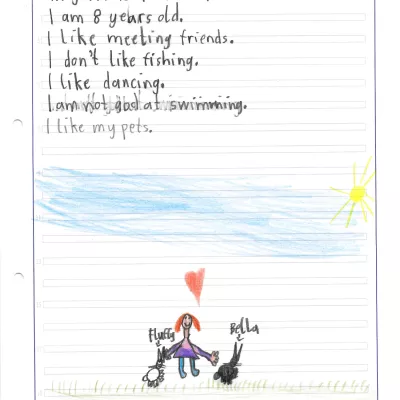 I am 8 years old.
I like meeting friends.
I don't like fishing.
I like dancing.
I am not good at swimming.
I like my pets.
Fluffy
Bella